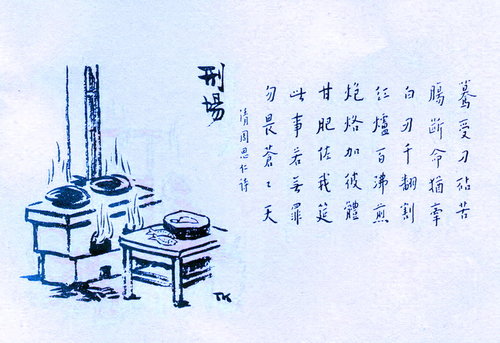 刑場
驀受刀砧苦
腸斷命猶牽
白刃千翻割
紅爐百沸煎
炮烙加彼體
甘肥佐我筵
此事若無罪
勿畏蒼々天
清周思仁詩
TK